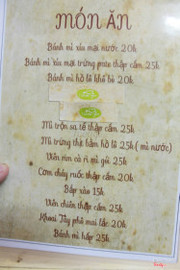 MÓN ĂN
Bánh mì xíu mại nước 20k
Bánh mì xíu mại trứng pate thập cẩm 25k
Bánh mì bò lá khổ bè 20k
Mì trộn sa tế thập cẩm 25k
Mì trứng thịt bằm bò lá 25k (mì nước)
Viên cà ri mì gà 25k
Cơm cháy ruốc thập cẩm 20k
Bắp xào 15k
Viên chiên thập cẩm 25k
Khoai Tây phô mai lắc 20k
Bánh mì hấp 25k